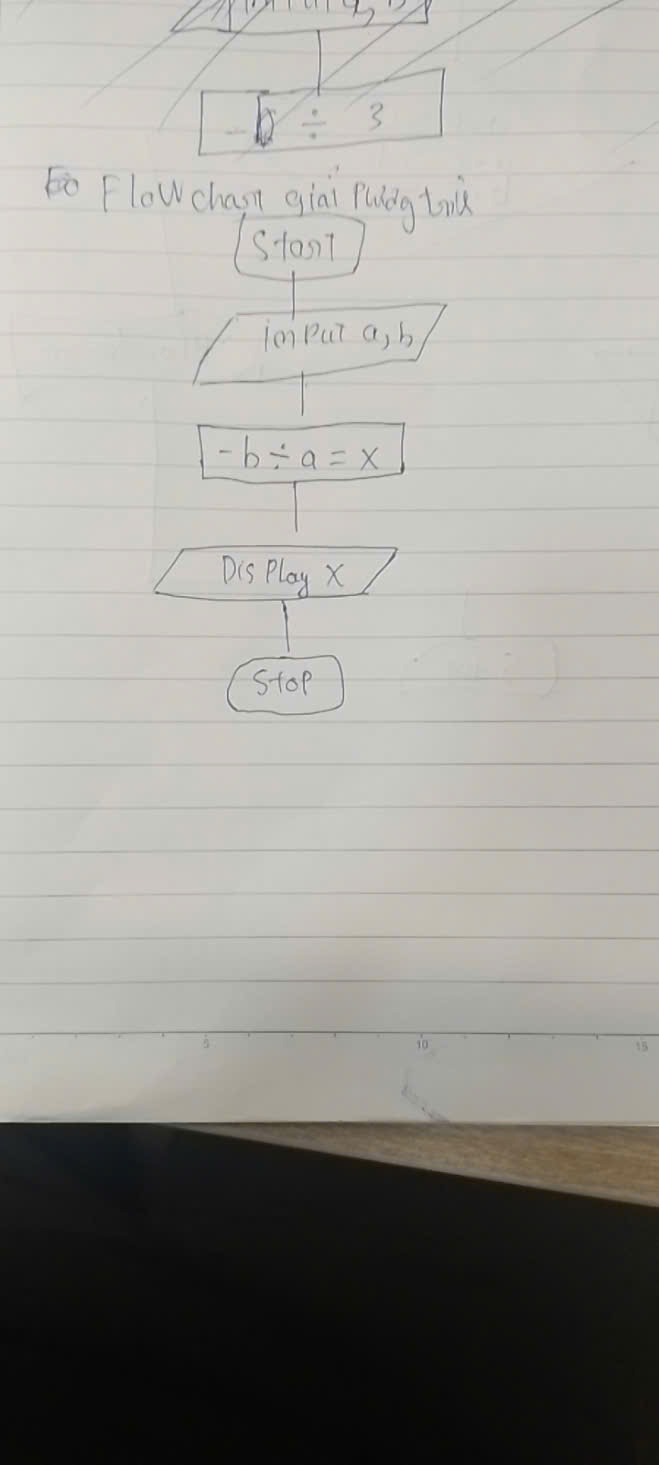 input a, b
-b ÷ 3
Flowchart giải Phương trình
Start
input a, b
-b ÷ a = x
Display x
Stop
5 10 15